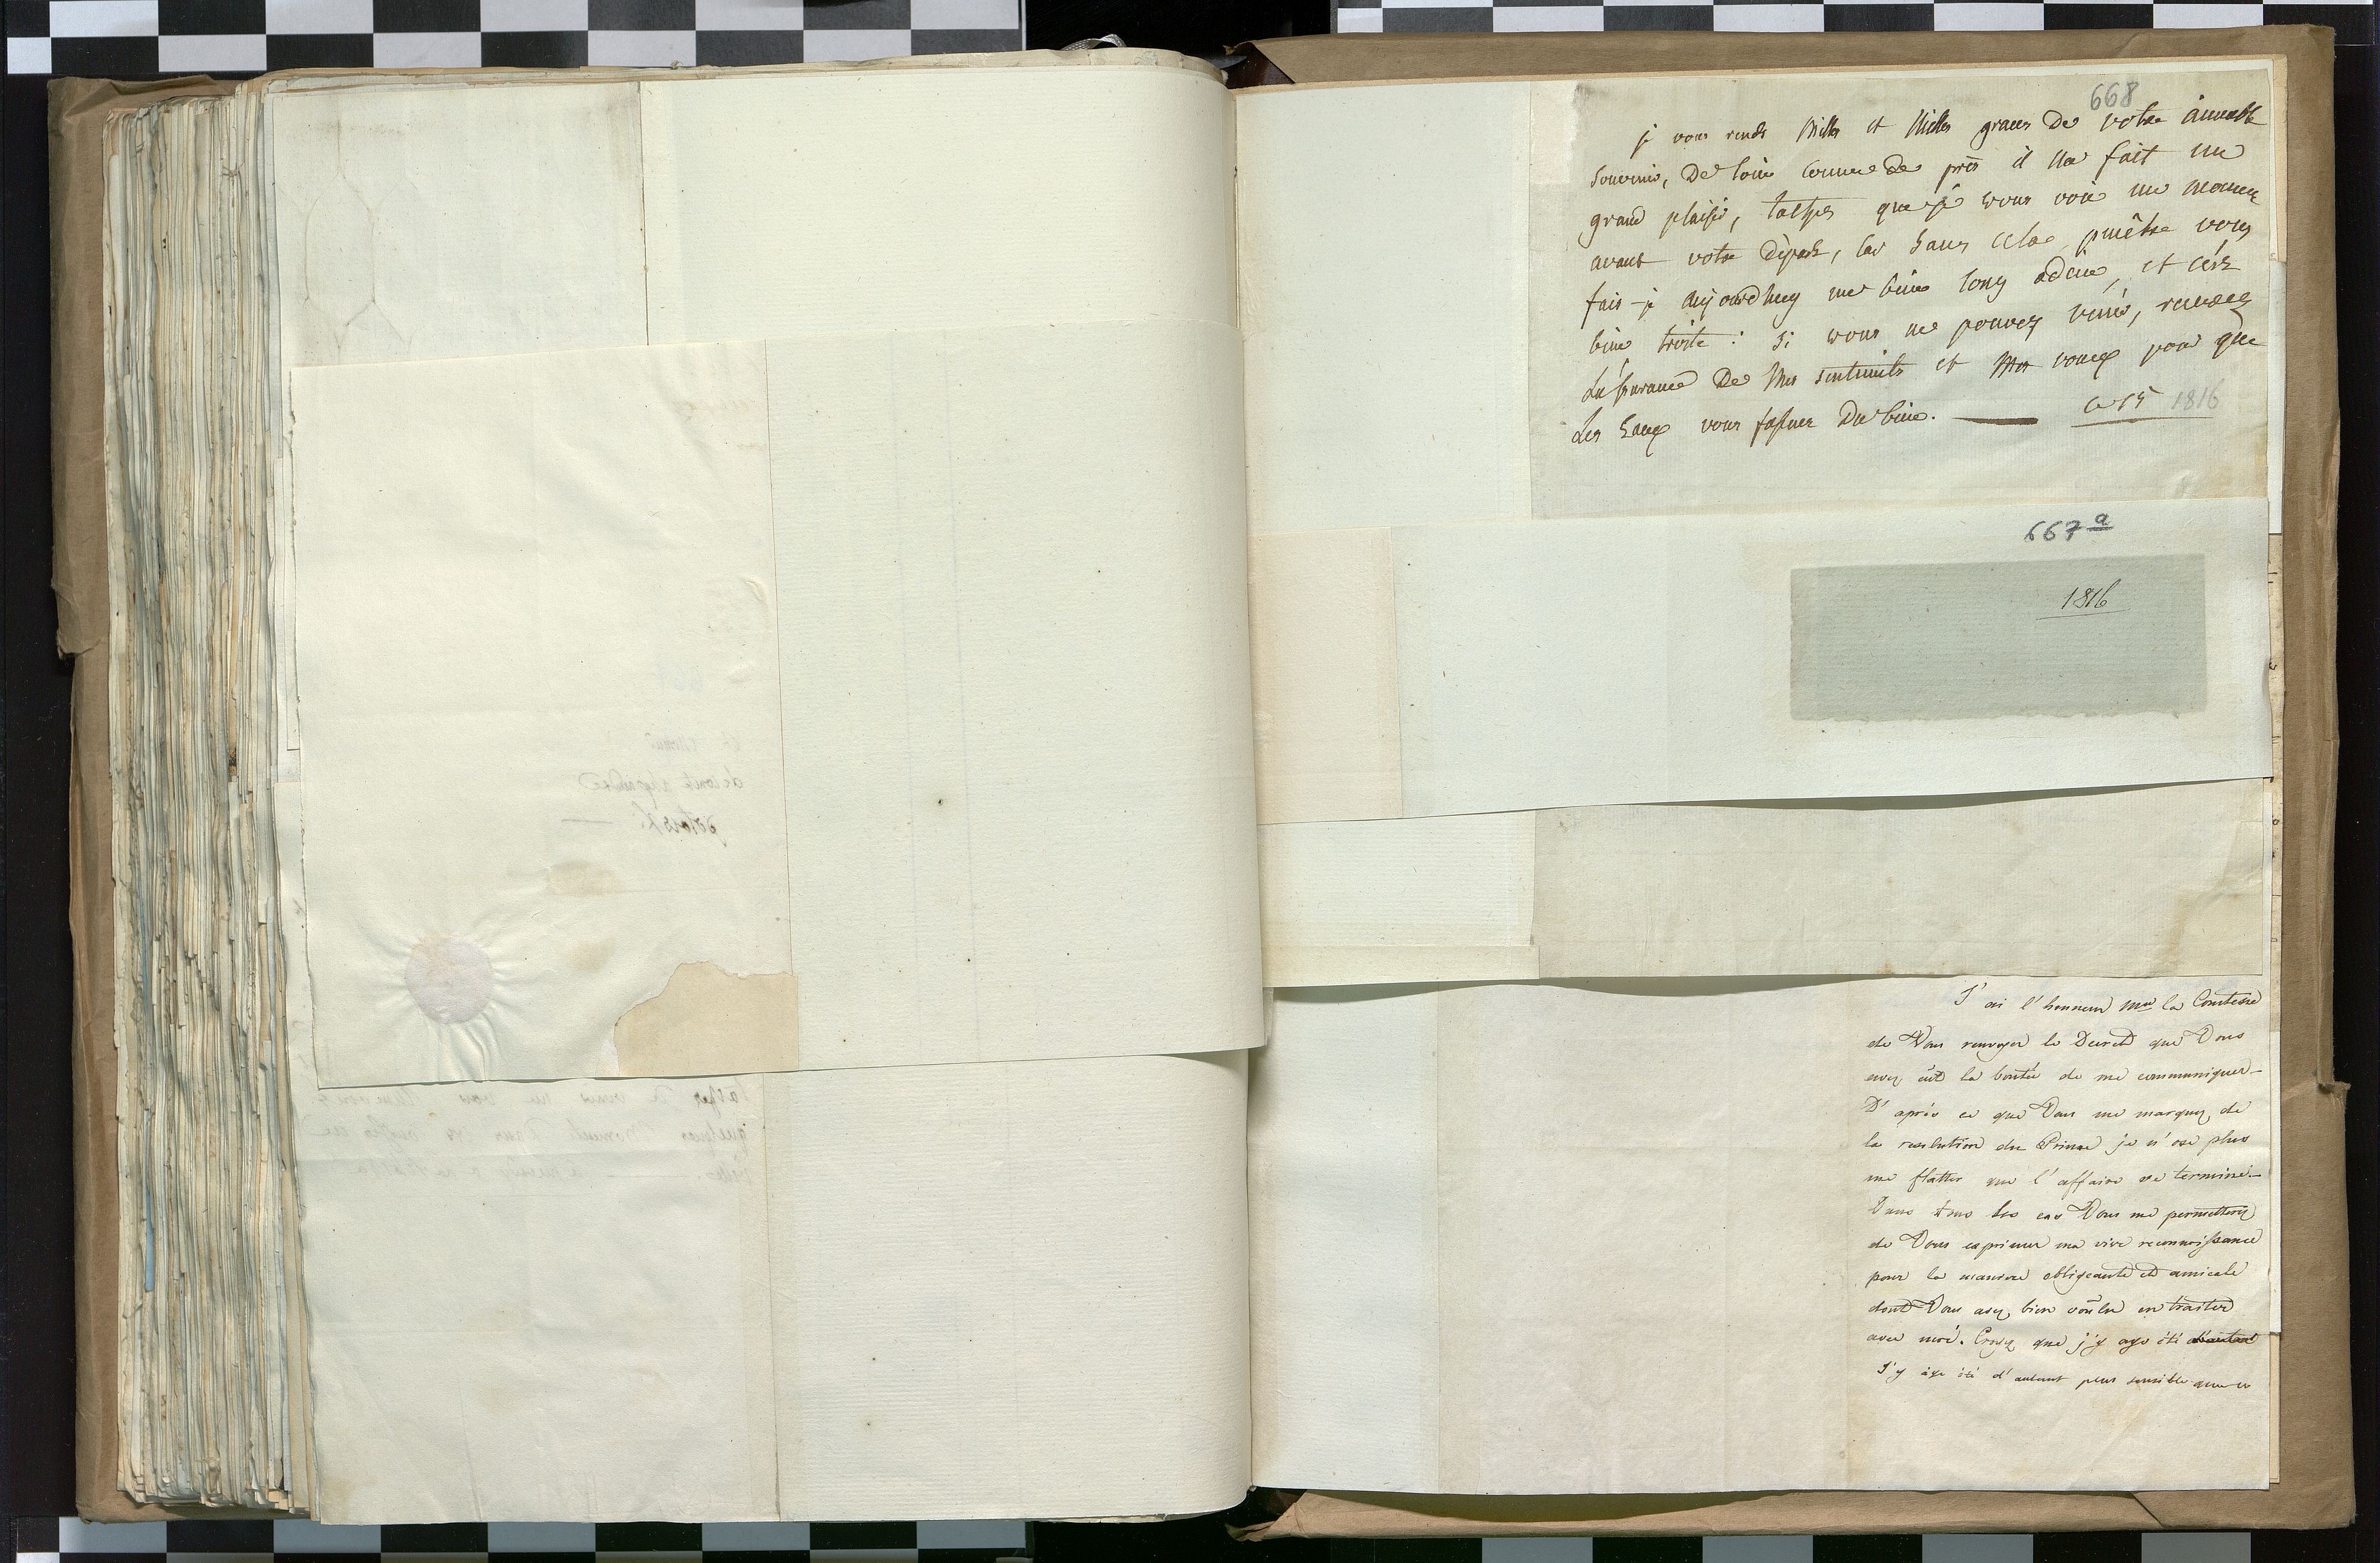 668
je vous rends Milles et Milles graces de votre aimable
souvenir, de loin comme de près il me fait un
grand plaisir, tachez que je vous voie un moment
avant votre départ, car sans cela peutêtre vous
fais-je aujourdhuy un bien long adieu, et c'est
bien triste : si vous ne pouvez venir, recevez
L'assurance de Mes sentiments et Mes voeux pour que
Les Eaux vous fassent du bien. — ce 15 1816
667 a
1816
J'ai l'honneur Mme la Comtesse
de Vous renvoyer le Decret que Vous
avez eût la bontée de me communiquer –
D'après ce que Vous me marquez de
la resolution du Prince je n'ose plus
me flatter que l'affaire se termine. –
Dans tous les cas Vous me permettrez
de Vous exprimer ma vive reconnoissance
pour la maniere obligeante et amicale
dont Vous avez bien voulu en traiter
avec moi. Croyez que j'y aye été d'autant
J'y aye été d'autant plus sensible que